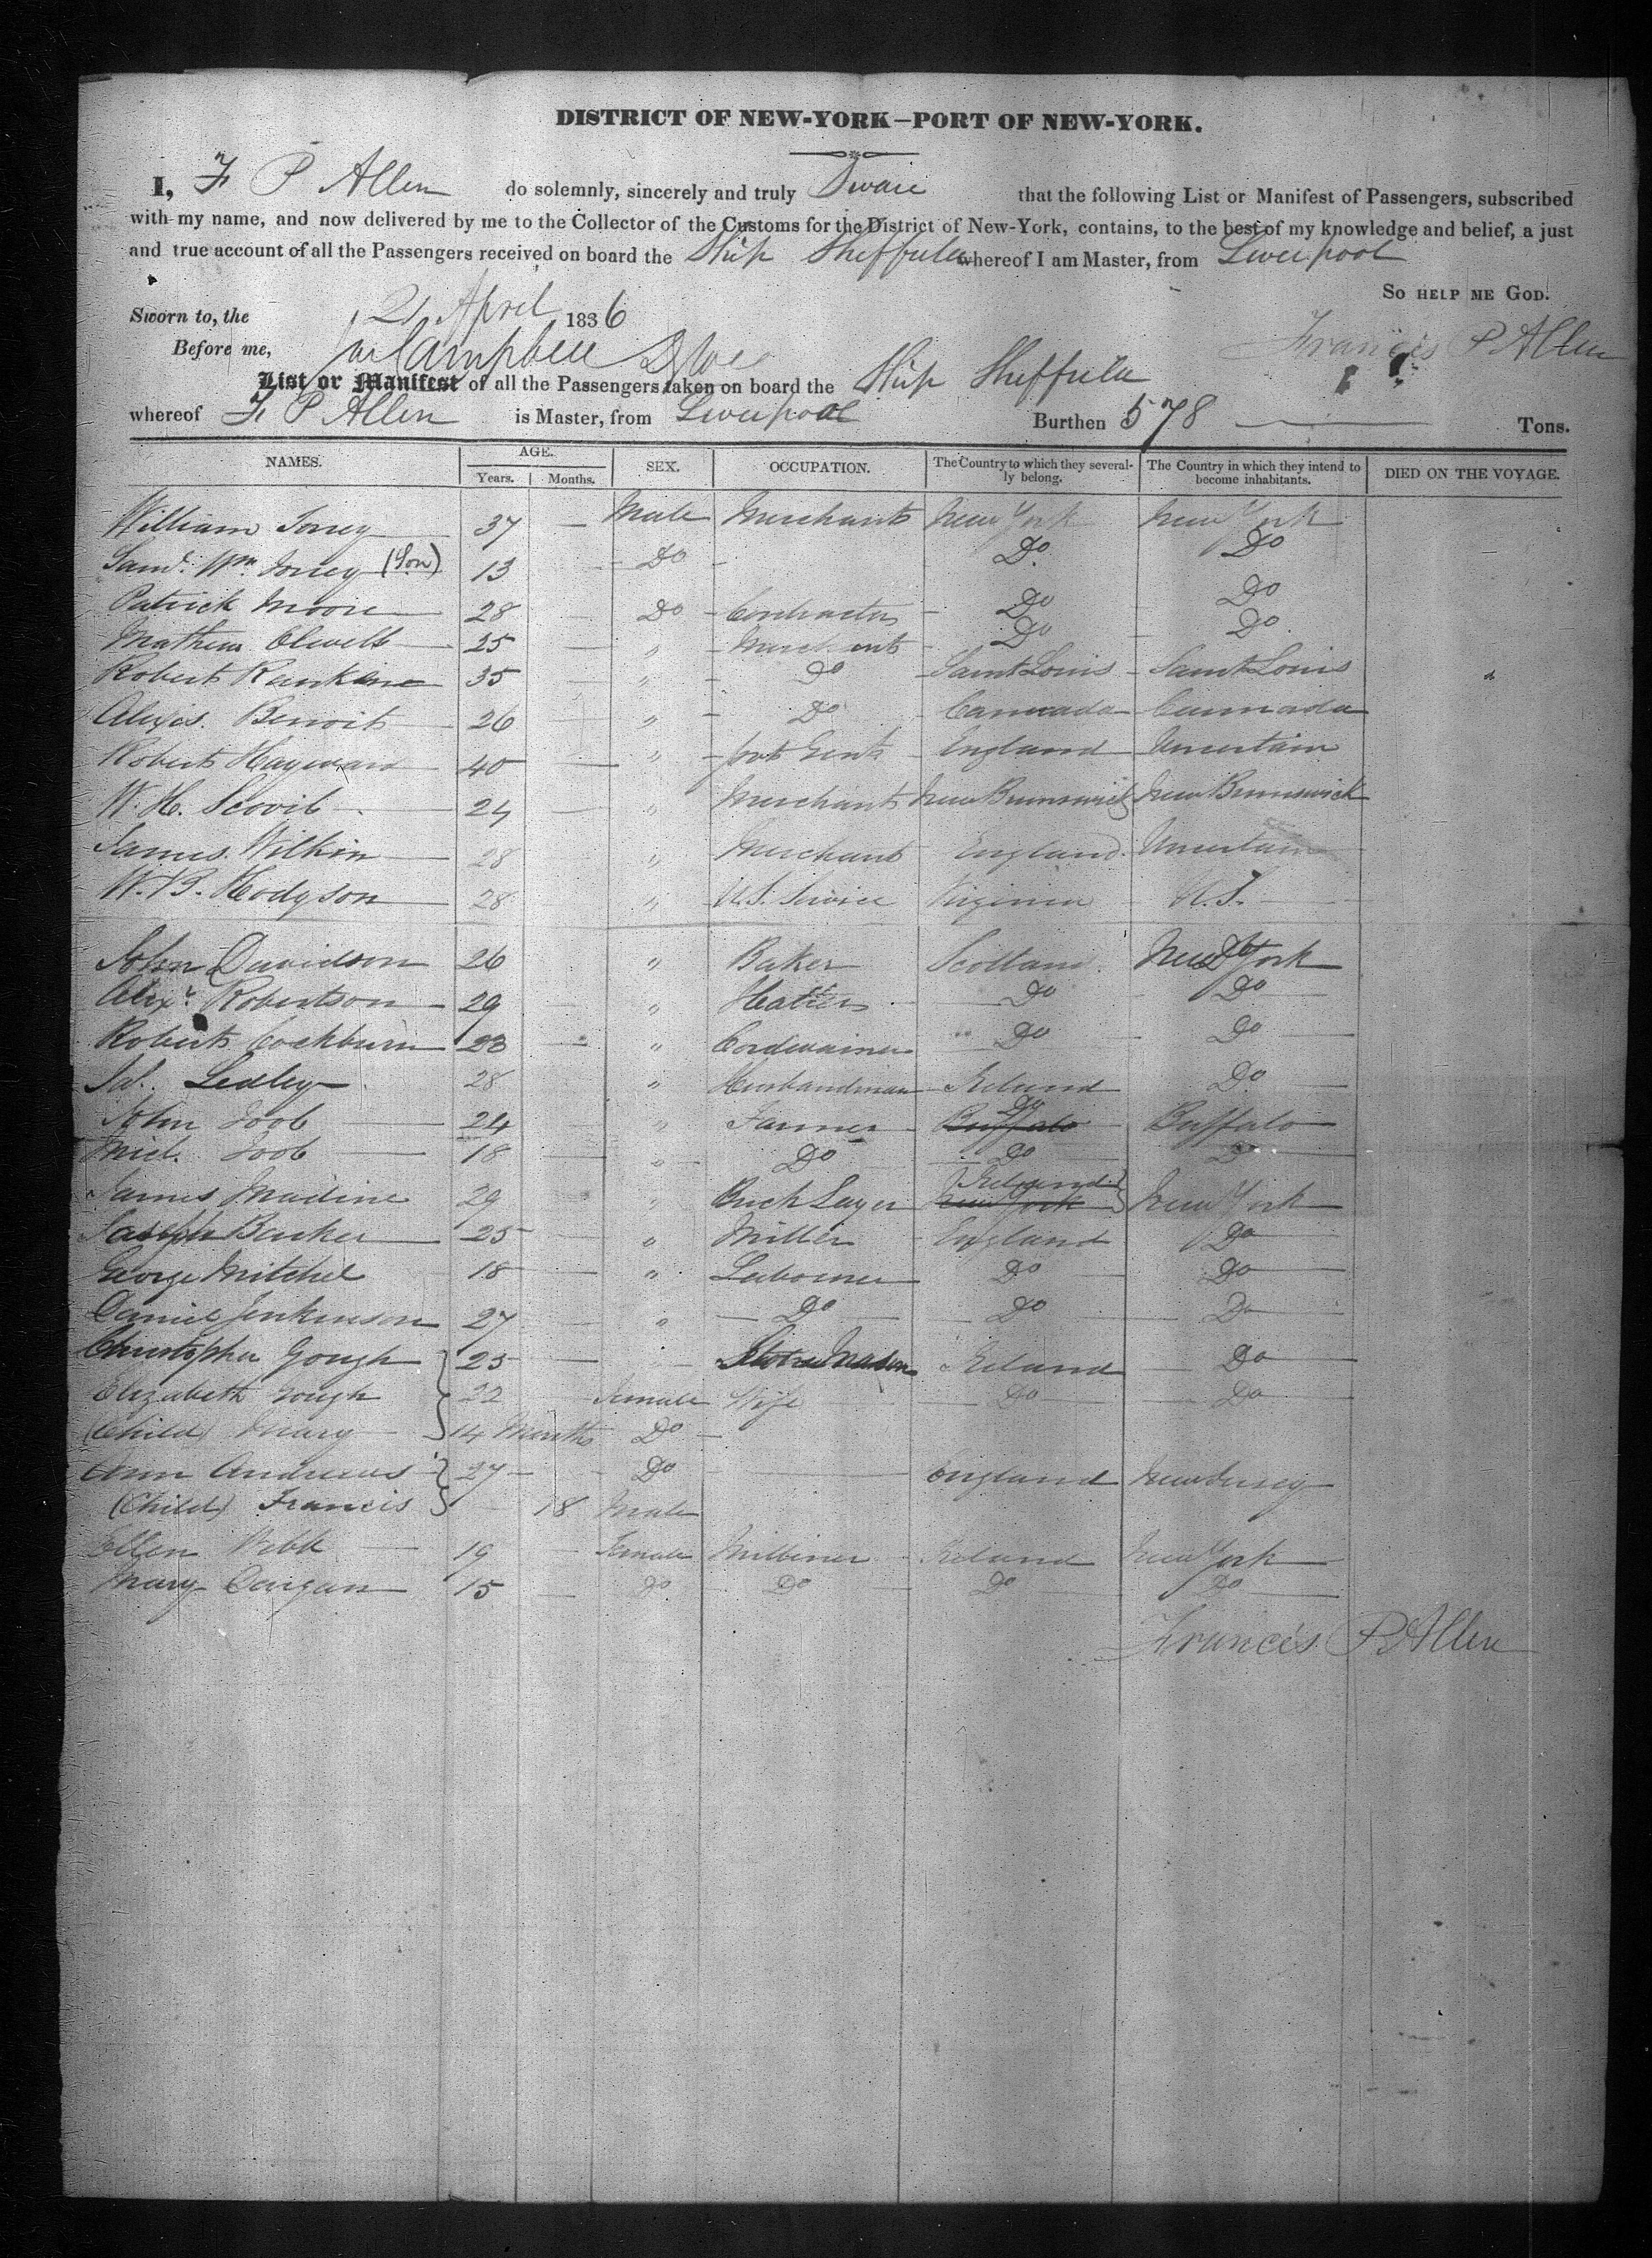 DISTRICT OF NEW-YORK—PORT OF NEW-YORK.
I, F P Allen do solemnly, sincerely and truly Swear that the following List or Manifest of Passengers, subscribed
with my name, and now delivered by me to the Collector of the Customs for the District of New-York, contains, to the best of my knowledge and belief, a just
and true account of all the Passengers received on board the Ship Sheffield whereof I am Master, from Liverpool
So HELP ME GOD.
Sworn to, the 21 April 1836
Francis P Allen
Before me, Campbell
List or Manifest of all the Passengers taken on board the Ship Sheffield
whereof F P Allen is Master, from Liverpool Burthen 578 Tons.
NAMES. AGE. SEX. OCCUPATION. The Country to which they severally belong. The Country in which they intend to become inhabitants. DIED ON THE VOYAGE.
Years. Months.
William 37 — Male Merchant New York New York
Saml. Wm. (Son) 13 — Do — Do Do
Patrick Moore 28 — Do Contractor Do Do
Mathew 25 — " Merchant Do Do
Robert Rankine 35 — " Do Saint Louis Saint Louis
Alexis Benoit 26 — " Do Cannada Cannada
Robert Hayward 40 — " England Uncertain
W. H. Scovil 24 — " Merchant New Brunswick New Brunswick
James Wilkin 28 " Merchant England Uncertain
W. B. Hodgson 28 " U.S. Service Virginia U.S.
John Davidson 26 " Baker Scotland New York
Alexr. Robertson 29 " Hatter Do Do
Robert Cockburn 23 — " Cordwainer " Do Do
Ledley 28 " Husbandman Ireland Do
John 24 — " Farmer Buffalo Do Buffalo
Micl. 18 — " Do Do Do
James Madine 29 — " Brick Layer New York Ireland New York
Joseph Barker 25 — " Miller England Do
George Mitchel 18 — " Labourer Do Do
Daniel Jenkinson 27 — " Do Do Do
Christopher Gough 25 — " Stone Mason Ireland Do
Elizabeth Gough 22 — Female Wife Do Do
(Child) Mary 14 Months Do —
Ann Andrews 27 — Do — England New Jersey
(Child) Francis — 18 Male
Ellen Webb 19 — Female Milliner Ireland New York
Mary 15 — Do Do Do Do
Francis P Allen